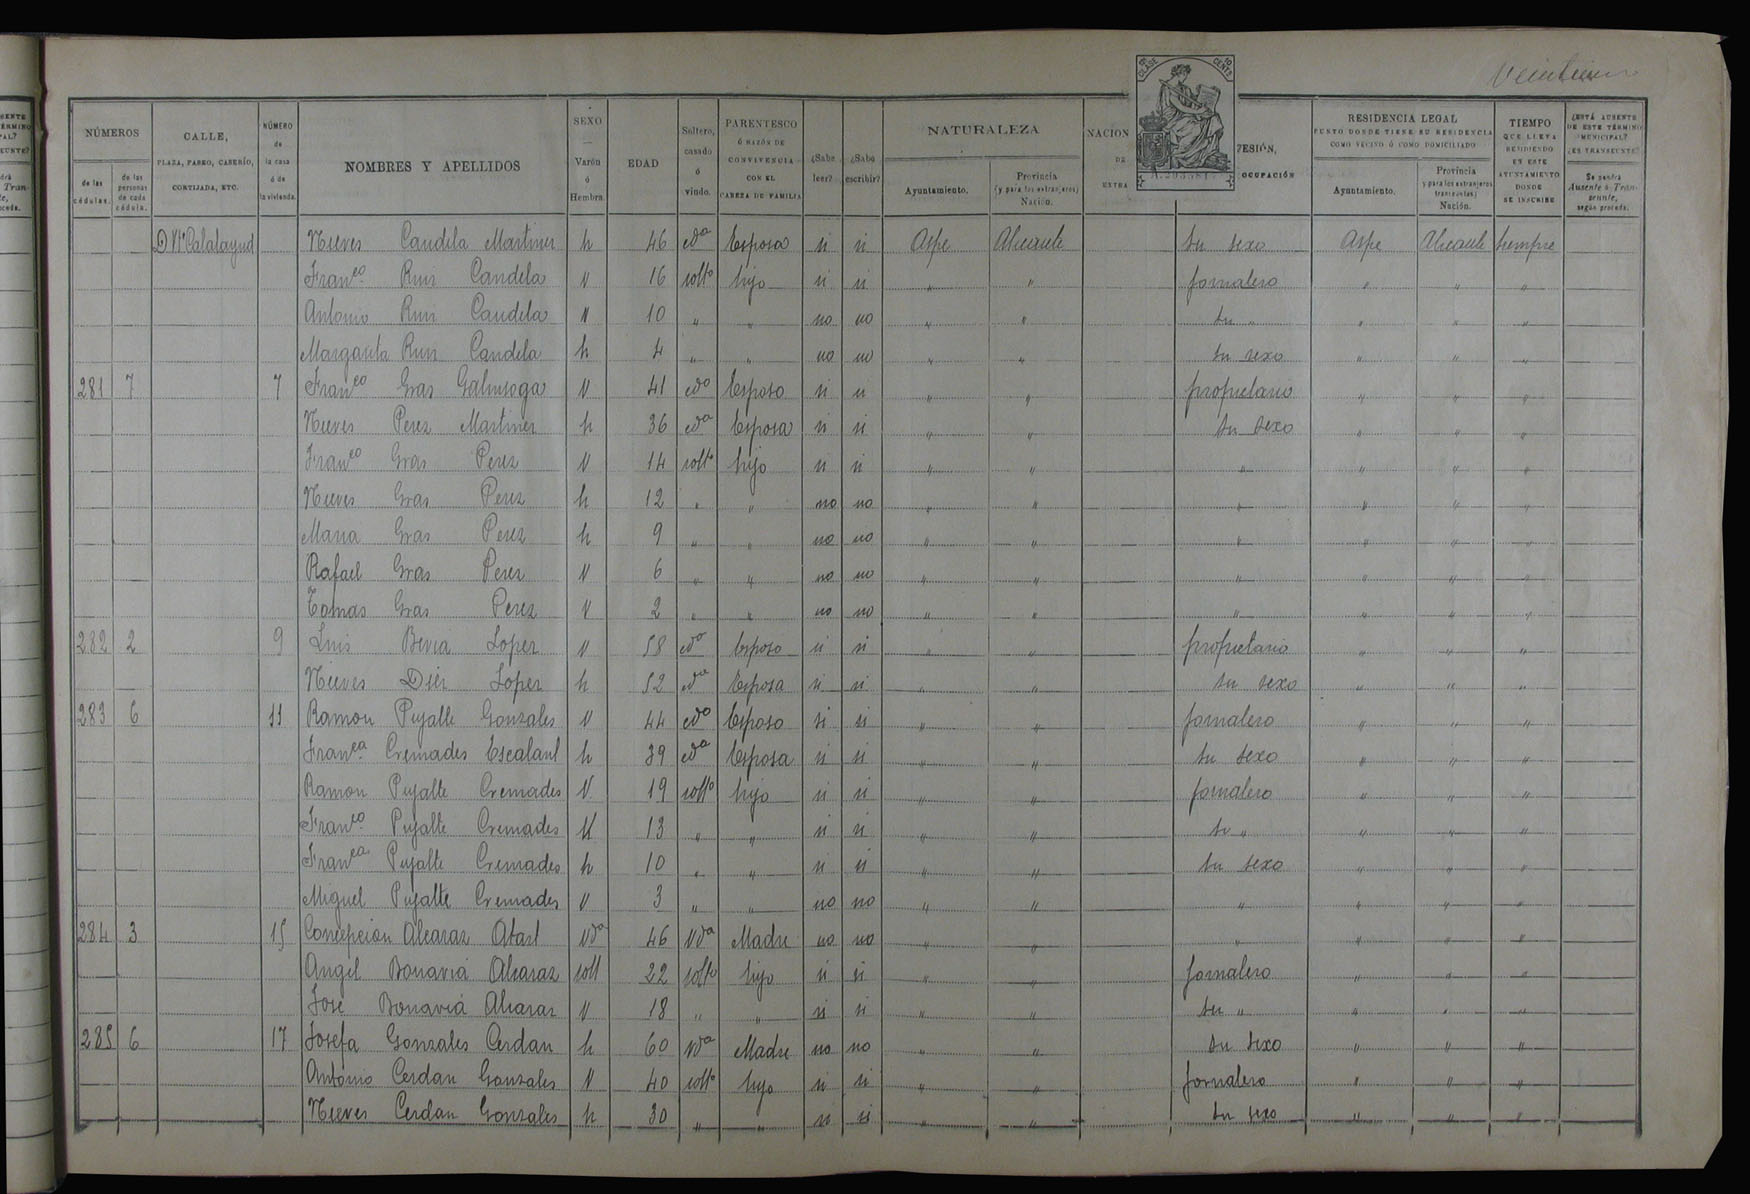 Veintiuno
NÚMEROS | CALLE, PLAZA, PASEO, CASERÍO, CORTIJADA, ETC. | NÚMERO de la casa ó de la vivienda. | NOMBRES Y APELLIDOS | SEXO Varón ó Hembra | EDAD | Soltero, casado ó viudo. | PARENTESCO Ó RAZÓN DE CONVIVENCIA CON EL CABEZA DE FAMILIA | ¿Sabe leer? | ¿Sabe escribir? | NATURALEZA | NACION DE EXTRA | 10ª CLASE 10 CENTS | FESIÓN, OCUPACIÓN | RESIDENCIA LEGAL PUNTO DONDE TIENE SU RESIDENCIA COMO VECINO Ó COMO DOMICILIADO | TIEMPO QUE LLEVA RESIDIENDO EN ESTE AYUNTAMIENTO DONDE SE INSCRIBE | ¿ESTÁ AUSENTE DE ESTE TÉRMINO MUNICIPAL? ¿ES TRANSEUNTE?
de las cédulas. | de las personas de cada cédula. | Ayuntamiento. | Provincia (y para los extranjeros) Nación. | Ayuntamiento. | Provincia y para los extranjeros transeuntes) Nación. | Se pondrá Ausente ó Transeunte, según proceda.
D. Vte Calatayud | Nieves Candela Martinez | h | 46 | cda | Esposa | si | si | Aspe | Alicante | su sexo | Aspe | Alicante | siempre
Franco. Ruiz Candela | V | 16 | solto | hijo | si | si | " | " | jornalero | " | " | "
Antonio Ruiz Candela | V | 10 | " | " | no | no | " | " | su " | " | " | "
Margarita Ruiz Candela | h | 4 | " | " | no | no | " | " | su sexo | " | " | "
281 | 7 | 7 | Franco Gras Galinsoga | V | 41 | cdo | Esposo | si | si | " | " | propietario | " | " | "
Nieves Perez Martinez | h | 36 | cda | Esposa | si | si | " | " | su sexo | " | " | "
Franco Gras Perez | V | 14 | solto | hijo | si | si | " | " | " | " | " | "
Nieves Gras Perez | h | 12 | " | " | no | no | " | " | " | " | " | "
Maria Gras Perez | h | 9 | " | " | no | no | " | " | " | " | " | "
Rafael Gras Perez | V | 6 | " | " | no | no | " | " | " | " | " | "
Tomas Gras Perez | V | 2 | " | " | no | no | " | " | " | " | " | "
282 | 2 | 9 | Luis Beviá Lopez | V | 58 | cdo | Esposo | si | si | " | " | propietario | " | " | "
Nieves Diez Lopez | h | 52 | cda | Esposa | si | si | " | " | su sexo | " | " | "
283 | 6 | 11 | Ramon Pujalte Gonzales | V | 44 | cdo | Esposo | si | si | " | " | jornalero | " | " | "
Franca. Cremades Escalant | h | 39 | cda | Esposa | si | si | " | " | su sexo | " | " | "
Ramon Pujalte Cremades | V | 19 | solto | hijo | si | si | " | " | jornalero | " | " | "
Franco. Pujalte Cremades | V | 13 | " | " | si | si | " | " | su " | " | " | "
Franca Pujalte Cremades | h | 10 | " | " | si | si | " | " | su sexo | " | " | "
Miguel Pujalte Cremades | V | 3 | " | " | no | no | " | " | " | " | " | "
284 | 3 | 15 | Concepcion Alcaraz | Vda | 46 | Vda | Madre | no | no | " | " | " | " | " | "
Angel Bonaviá Alcaraz | solt | 22 | solto | hijo | si | si | " | " | jornalero | " | " | "
José Bonaviá Alcaraz | V | 18 | " | " | si | si | " | " | su " | " | " | "
285 | 6 | 17 | Josefa Gonzales Cerdan | h | 60 | Vda | Madre | no | no | " | " | su sexo | " | " | "
Antonio Cerdan Gonzales | V | 40 | solto | hijo | si | si | " | " | jornalero | " | " | "
Nieves Cerdan Gonzales | h | 30 | " | " | si | si | " | " | su sexo | " | " | "